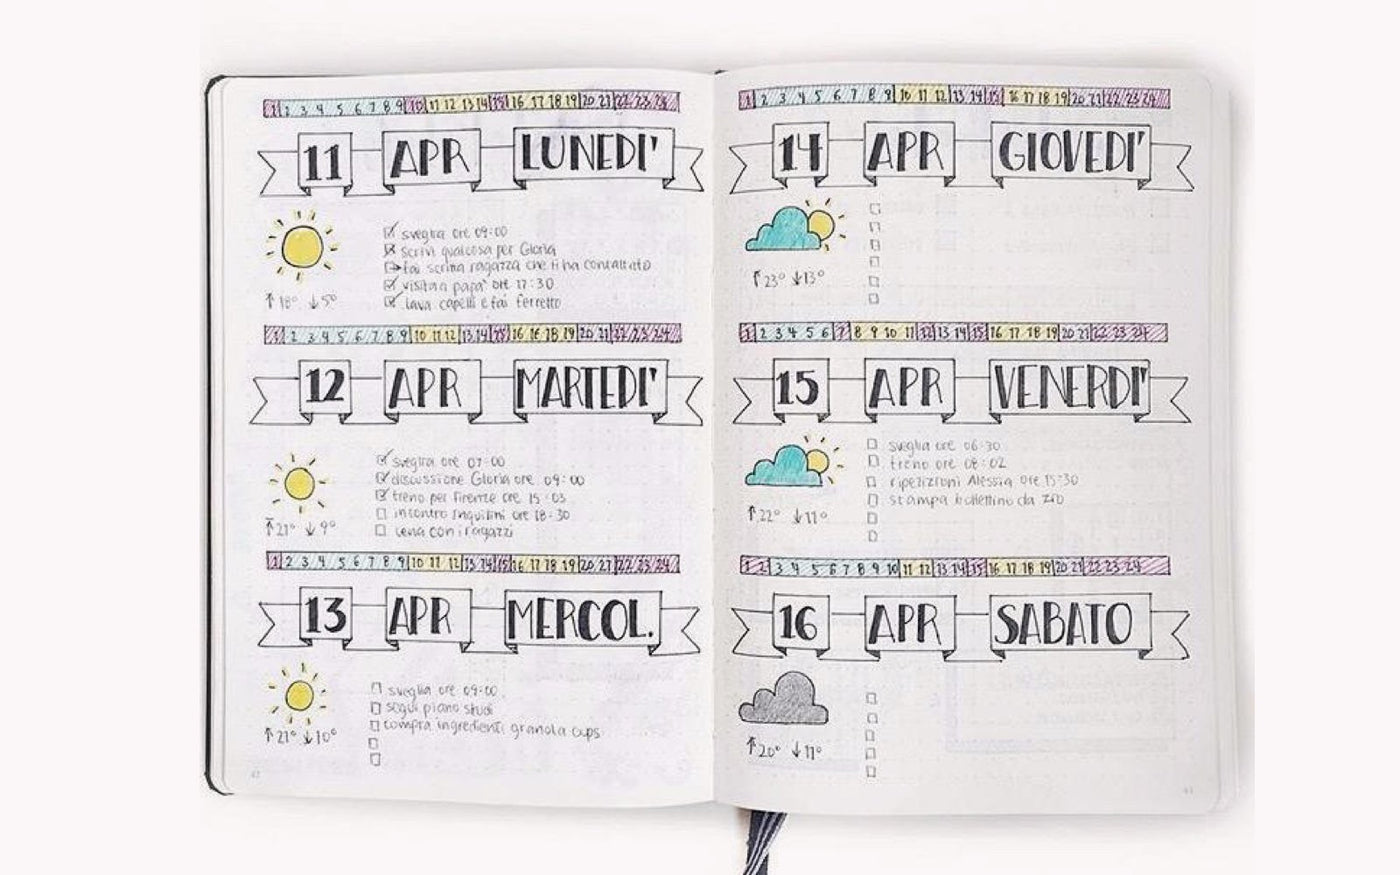 1 2 3 4 5 6 7 8 9 10 11 12 13 14 15 16 17 18 19 20 21 22 23 24
11 APR LUNEDI'
sveglia ore 09:00
scrivi qualcosa per Gloria
fai scrina ragazza che ti ha contattato
visita a papà ore 17:30
lava capelli e fai ferretto
↑18° ↓5°
1 2 3 4 5 6 7 8 9 10 11 12 13 14 15 16 16 18 19 20 21 22 23 24
12 APR MARTEDI'
sveglia ore 07:00
discussione Gloria ore 09:00
treno per Firenze ore 15:03
incontro inquilini ore 18:30
cena con i ragazzi
↑21° ↓9°
1 2 3 4 5 6 7 8 9 10 11 12 13 14 15 16 17 18 19 20 21 22 23 24
13 APR MERCOL.
sveglia ore 09:00
segui piano studi
compra ingredienti granola cups
↑21° ↓10°
1 2 3 4 5 6 7 8 9 10 11 12 13 14 15 16 17 18 19 20 21 22 23 24
14 APR GIOVEDI'
↑23° ↓13°
1 2 3 4 5 6 7 8 9 10 11 12 13 14 15 16 17 18 19 20 21 22 23 24
15 APR VENERDI'
sveglia ore 06:30
treno ore 08:02
ripetizioni Alessia ore 15:30
stampa bollettino da zio
↑22° ↓11°
1 2 3 4 5 6 7 8 9 10 11 12 13 14 15 16 17 18 19 20 21 22 23 24
16 APR SABATO
↑20° ↓11°